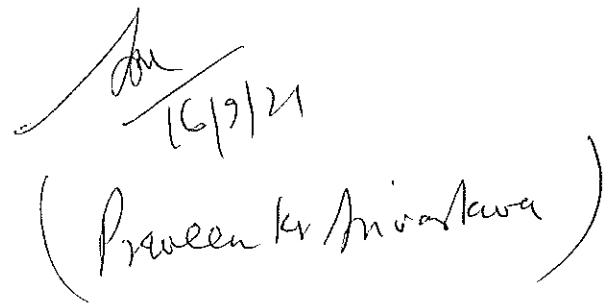 16/9/21
(Praveen Kr Srivastava)